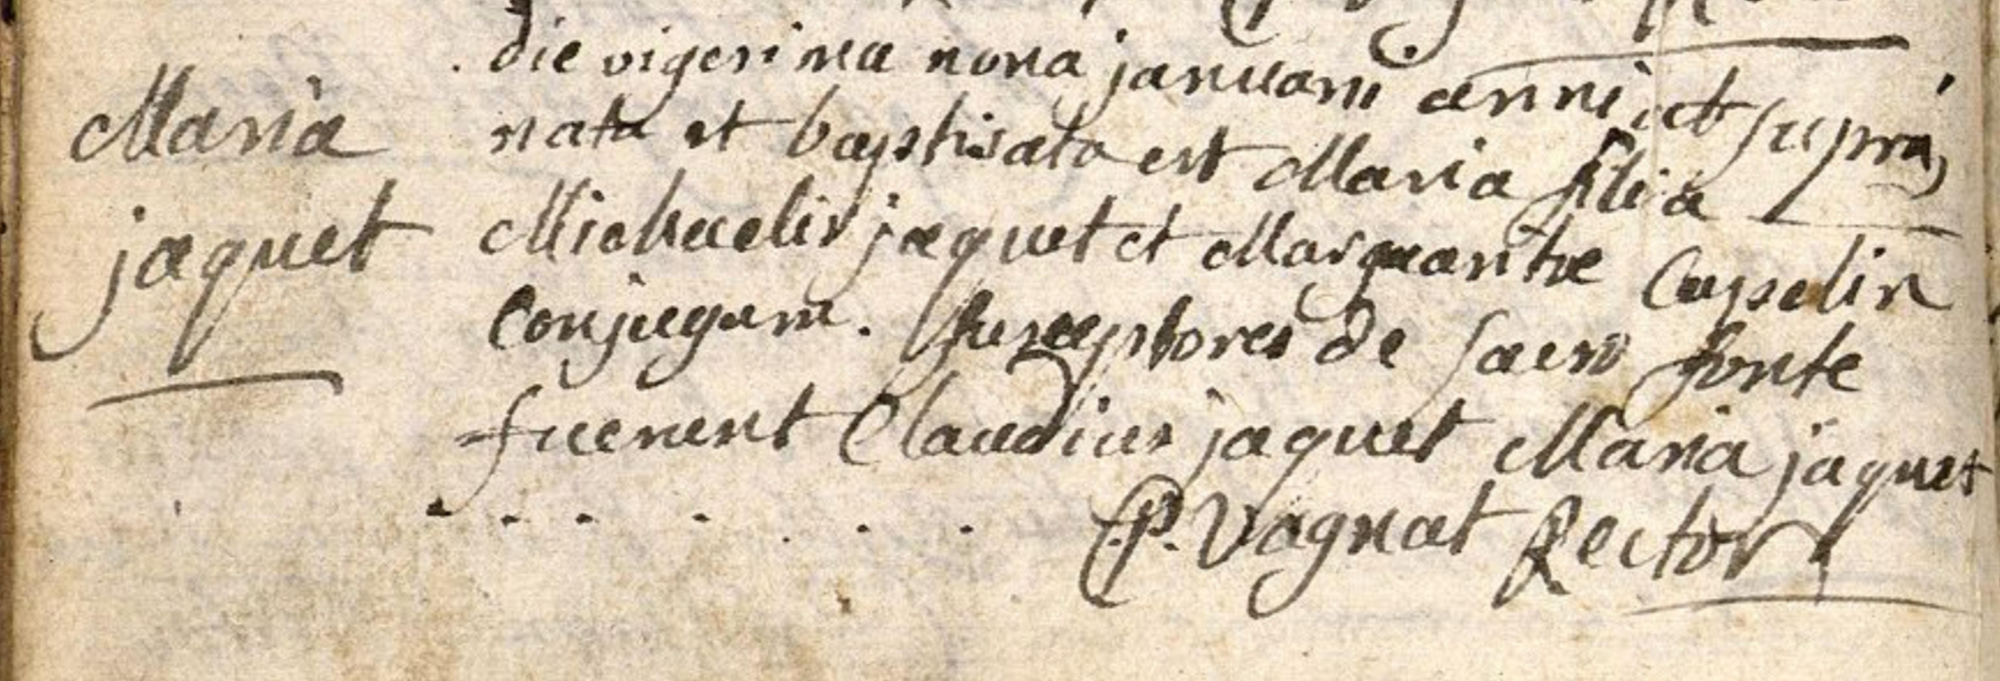 Maria
jaquet
die vigesima nona januarii anni ut supra,
nata et baptisata est Maria filia
Michaelis jaquet et Margaritae Capelin
Conjugum. Susceptores de sacro fonte
fuerunt Claudius jaquet Maria jaquet
P. Vagnat Rector